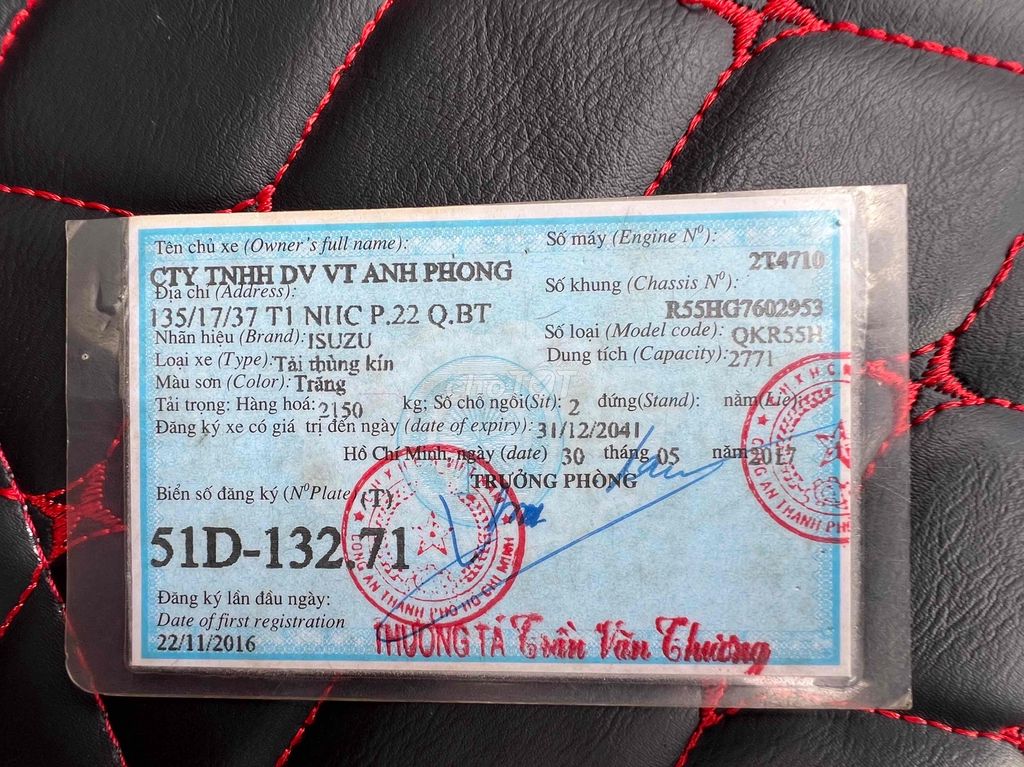 Tên chủ xe (Owner's full name):
CTY TNHH DV VT ANH PHONG
Địa chỉ (Address):
135/17/37 T1 NHC P.22 Q.BT
Nhãn hiệu (Brand): ISUZU
Loại xe (Type): Tải thùng kín
Màu sơn (Color): Trắng
Số máy (Engine Nº):
2T4710
Số khung (Chassis Nº):
R55HG7602953
Số loại (Model code): QKR55H
Dung tích (Capacity): 2771
Tải trọng: Hàng hoá: 2150 kg; Số chỗ ngồi(Sit): 2 đứng(Stand): nằm(Lie):
Đăng ký xe có giá trị đến ngày (date of expiry): 31/12/2041
Hồ Chí Minh, ngày (date) 30 tháng 05 năm 2017
TRƯỞNG PHÒNG
Biển số đăng ký (NºPlate) (T)
51D-132.71
CÔNG AN THÀNH PHỐ HỒ CHÍ MINH
CÔNG AN THÀNH PHỐ
Đăng ký lần đầu ngày:
Date of first registration
22/11/2016
THƯỢNG TÁ Trần Văn Thương
Chợ TỐT